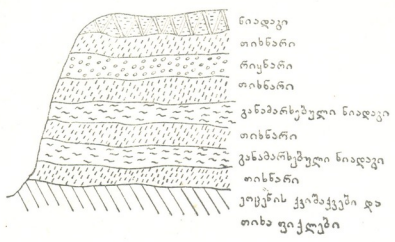 ნიადაგი
თიხნარი
რიყნარი
თიხნარი
განამარხებული ნიადაგი
თიხნარი
განამარხებული ნიადაგი
თიხნარი
ეოცენის ქვიშაქვები და
თიხა ფიქლები